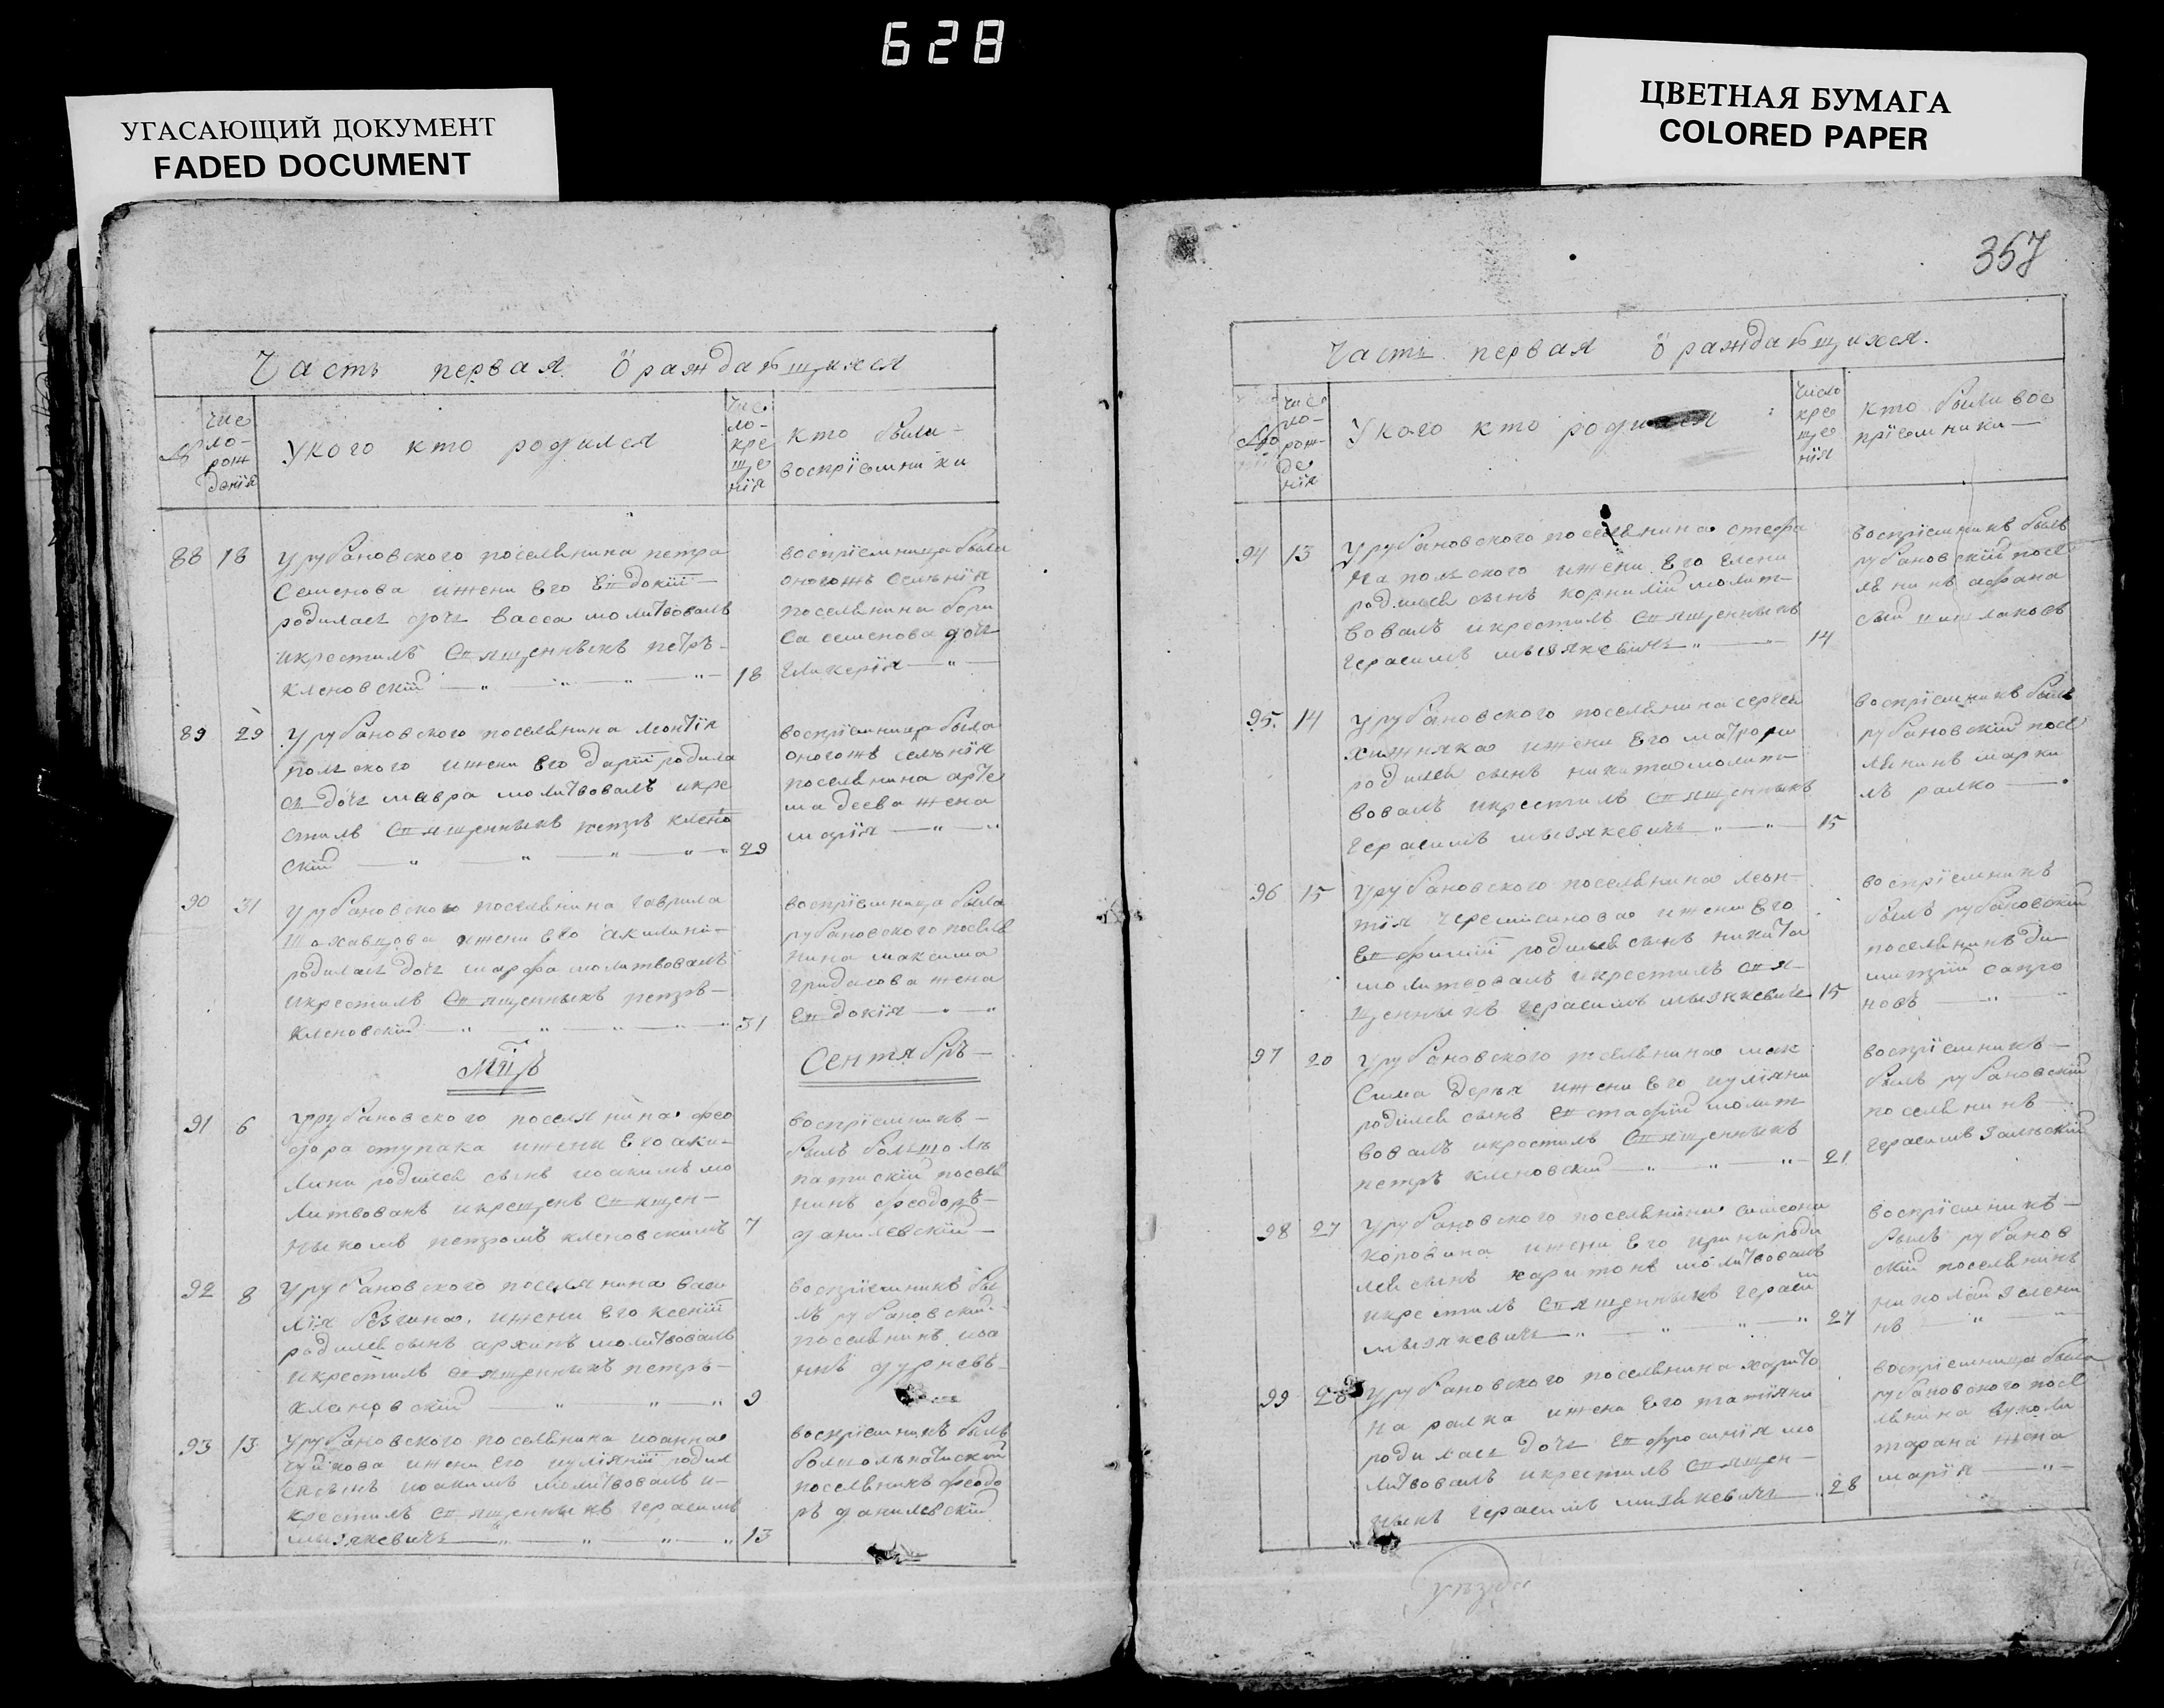 628
УГАСАЮЩИЙ ДОКУМЕНТ
FADED DOCUMENT
ЦВЕТНАЯ БУМАГА
COLORED PAPER
Часть первая Ö раждающихся
№
Чис
ло-
рож
денія
Укого кто родился
Чис
ло-
кре
ще
нія
кто были-
воспріемники
88 18
Урубановского поселянина петра
Семенова ижени Его Евдокіи
родилась дочь васса молитвовалъ
икрестилъ Священникъ петръ-
кленовскій
18
воспріемница была
оногожъ селенія
поселянина бори
са семенова дочь
гликерія
89 29
Урубановского поселянина леонтія
польского ижени Его даріи родила
сь дочь мавра молитвовалъ икре
стилъ Священникъ петръ клено
скій
29
воспріемница была
оногожъ селенія
поселянина арте
ма деева жена
марія
90 31
Урубановского поселянина гаврила
ижени Его акилини-
родилась дочь марфа молитвовалъ
икрестилъ Священникъ петръ-
кленовскій
31
воспріемница была
рубановского поселя
нина максима
гридасова жена
Евдокія
Мцъ
Сентябрь
91 6
Урубановского поселянина фео
дора ступака ижени Его аки-
лини родился сынъ иоакимъ мо
литвованъ икрещенъ Священ-
никомъ петромъ кленовскимъ
7
воспріемникъ-
былъ большолъ
патискій поселя
нинъ феодоръ-
данилевскій
92 8
Урубановского поселянина васи
лія ижени Его ксеніи
родился сынъ архипъ молитвовалъ
икрестилъ Священникъ петръ-
кленовскій
9
воспріемникъ бы
лъ рубановскій
поселянинъ иоа
ннъ дурневъ
93 13
Урубановского поселянина иоанна
чуйкова ижени Его иуліяніи родил
ся сынъ иоакимъ молитвовалъ и-
крестилъ Священникъ герасимъ
мызякевичъ
13
воспріемникъ былъ
поселянинъ феодо
ръ данилевскій
357
Часть первая Ö раждающихся.
№
Чис
ло-
рож-
де
нія
Укого кто родился
Число
кре
ще
нія
кто были вос
пріемники
94 13
Урубановского поселянина стефа
на польского ижени Его Елени
родился сынъ корнилій молит-
вовалъ икрестилъ Священникъ
герасимъ мызякевичъ
14
воспріемникъ былъ
рубановскій посе
лянинъ афана
сій
95. 14
Урубановского поселянина сергея
хижняка ижени Его матрони
родился сынъ никита молит-
вовалъ икрестилъ Священникъ
герасимъ мызякевичъ
15
воспріемникъ былъ
рубановскій посе
лянинъ марки
лъ ралко
96 15
Урубановского поселянина леон-
тія черемисинова ижени Его
Евфиміи родился сынъ никита
молитвовалъ икрестилъ Свя-
щенникъ герасимъ мызякевичь
15
воспріемникъ
былъ рубановскій
поселянинъ ди-
митрій сапро
новъ
97 20
Урубановского поселянина мак
сима ижени Его иуліяни
родился сынъ Евстафій молит
вовалъ икрестилъ Священникъ
петръ кленовскій
21
воспріемникъ-
былъ рубановскій
поселянинъ-
герасимъ залескій
98 27
Урубановского поселянина симеона
коровина ижени Его ирини роди
лся сынъ харитонъ молитвовалъ
икрестилъ Священникъ герасим
мызякевичъ
27
воспріемникъ-
былъ рубанов
скій поселянинъ
николай зелени
нъ
99 28
Урубановского поселянина харито
на ралка ижени Его татіяни
родилась дочь Евфросинія мо
литвовалъ икрестилъ Священ-
никъ герасимъ мизякевичъ
28
воспріемница была
рубановского посе
лянина
тарана жена
марія